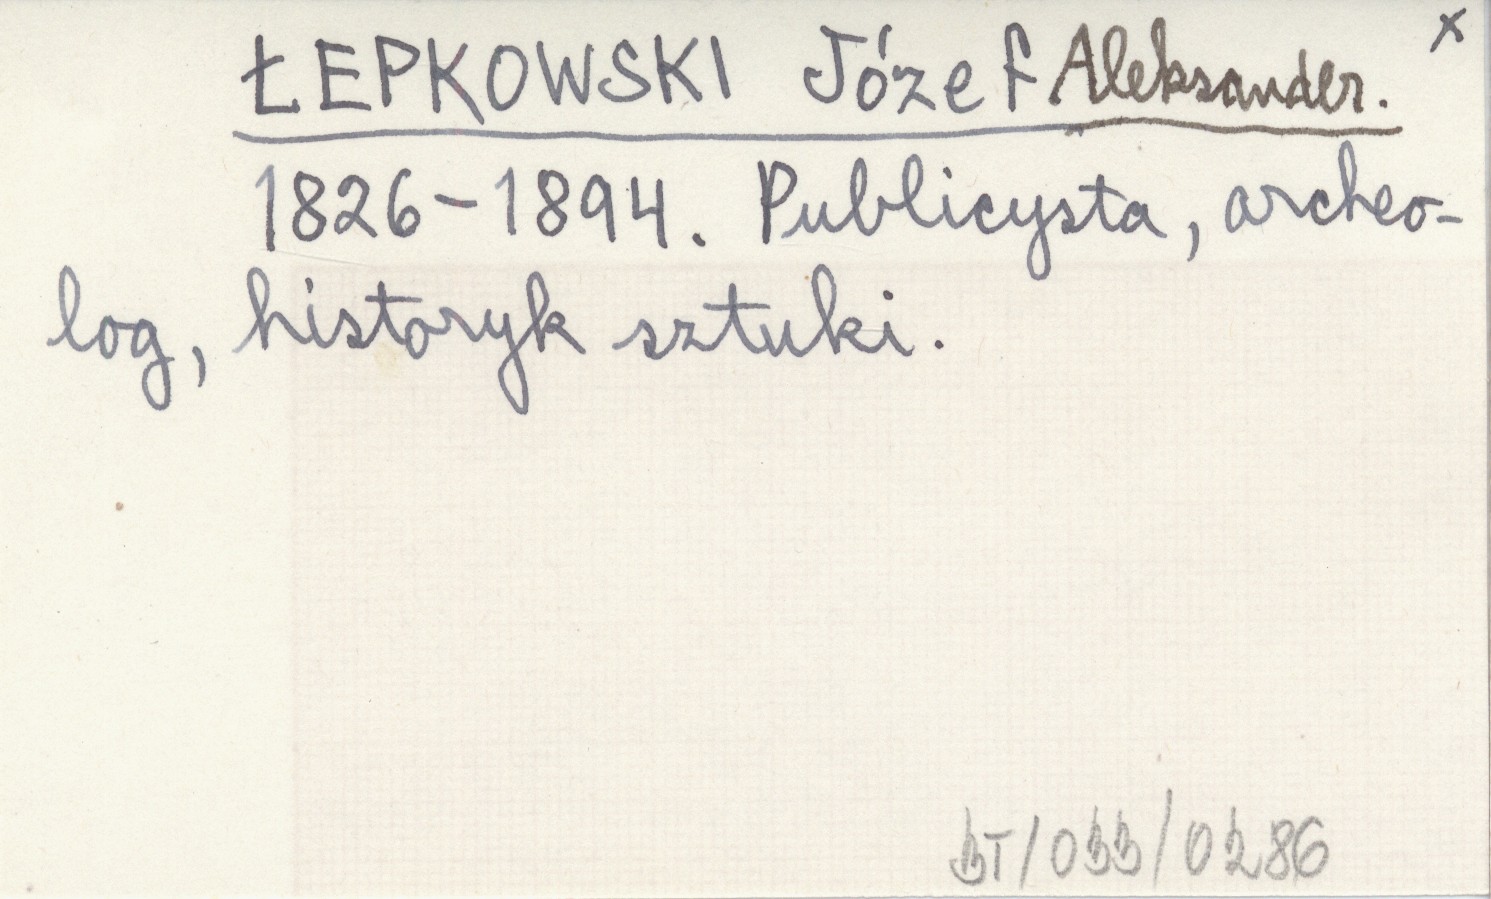 ŁEPKOWSKI Józef Aleksander. x
1826-1894. Publicysta, archeo-
log, historyk sztuki.
BT/033/0286